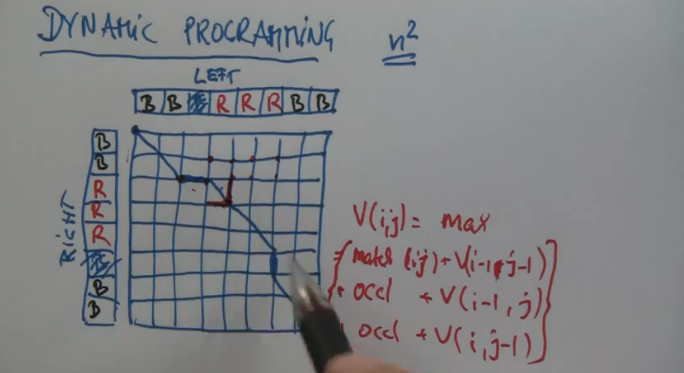 DYNAMIC PROGRAMMING n²
LEFT
B B R R R B B
RIGHT
B
B
R
R
R
B
B
V(i,j) = max
match (i,j) + V(i-1, j-1)
+ occl + V(i-1, j)
occl + V(i, j-1)